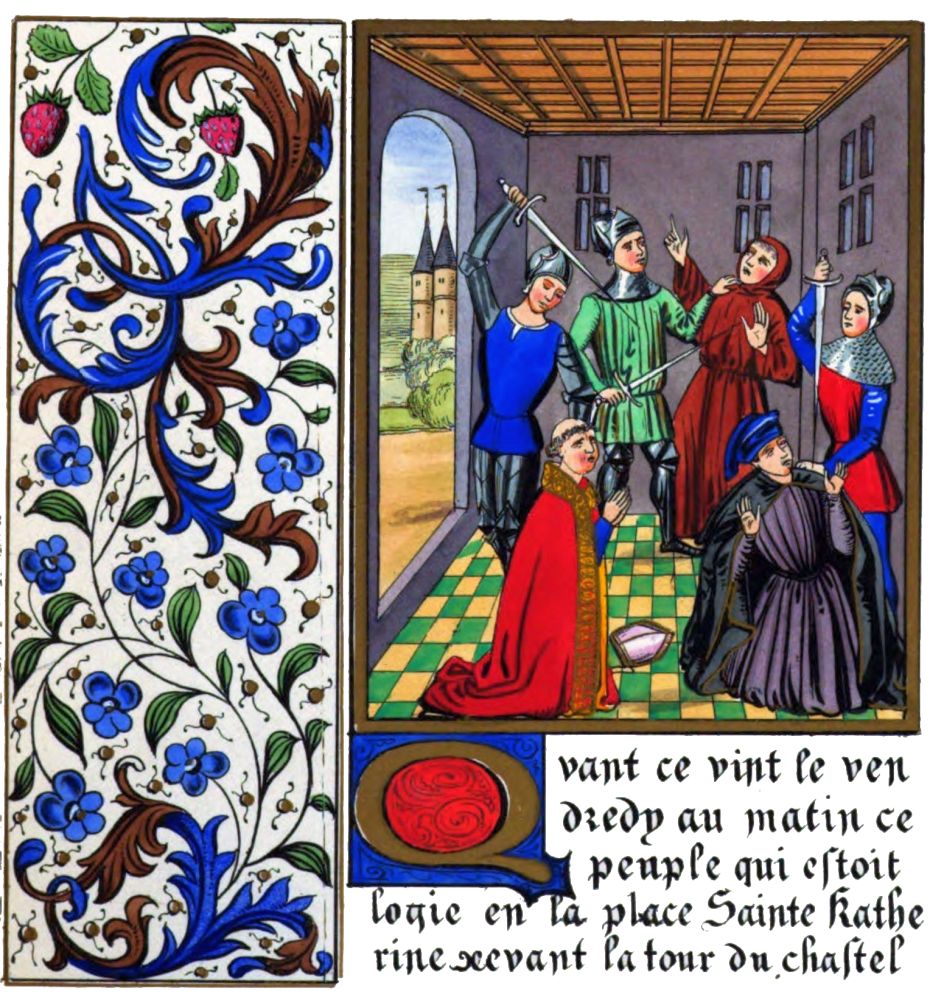 Quant ce vint le ven
dredy au matin ce
peuple qui estoit
logie en la place Sainte Kathe
rine devant la tour du chastel